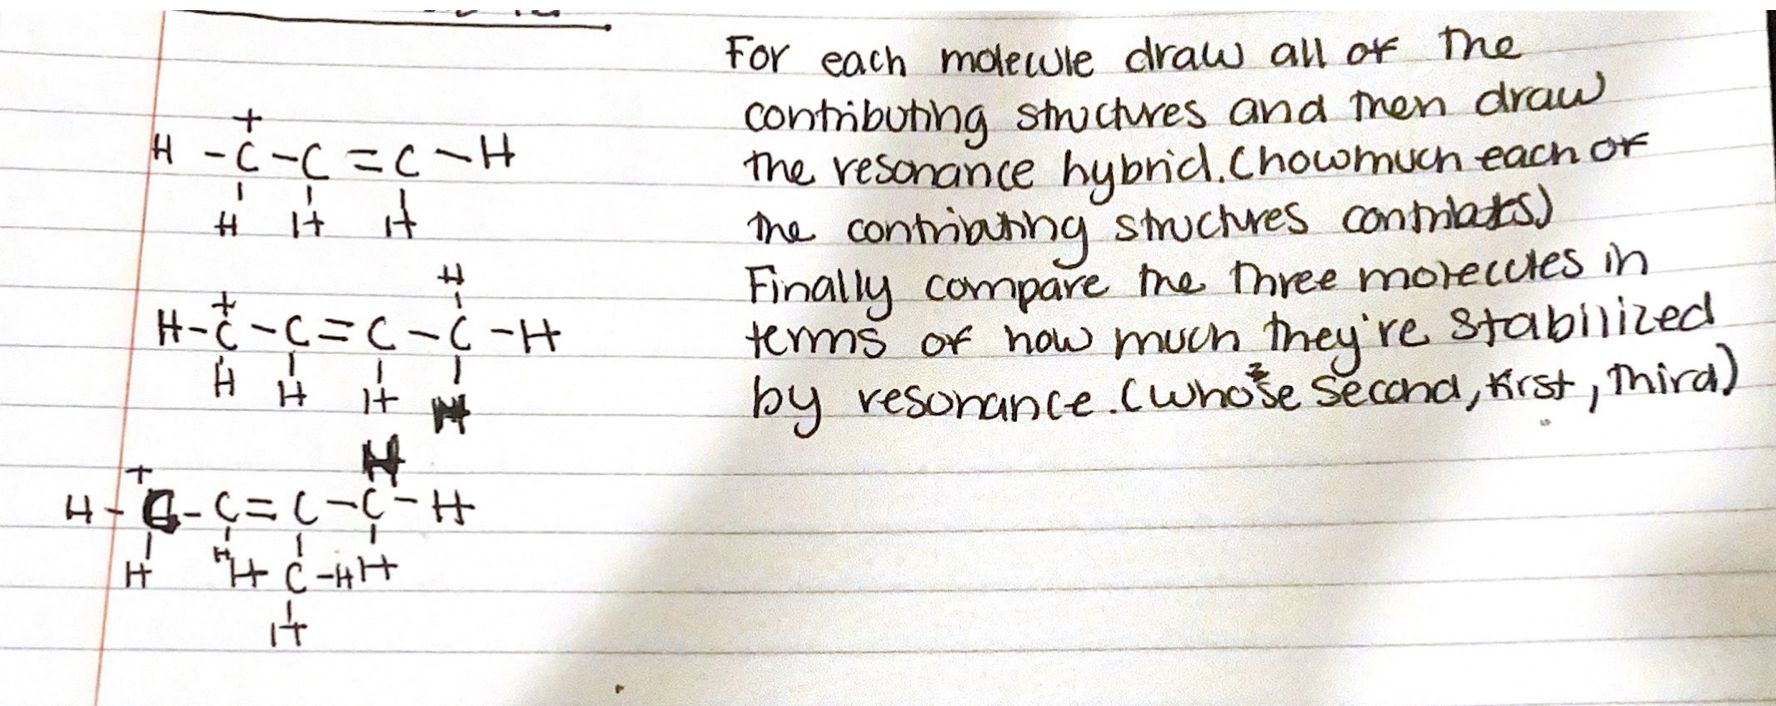 For each molecule draw all of the
contributing structures and then draw
the resonance hybrid. (how much each of
the contributing structures contributes)
Finally compare the three molecules in
terms of how much they're stabilized
by resonance. (whose second, first, third)
+
H - C - C = C - H
H H H
H
+
H - C - C = C - C - H
H H H H
+ H
H - C - C = C - C - H
H H C - H H
H